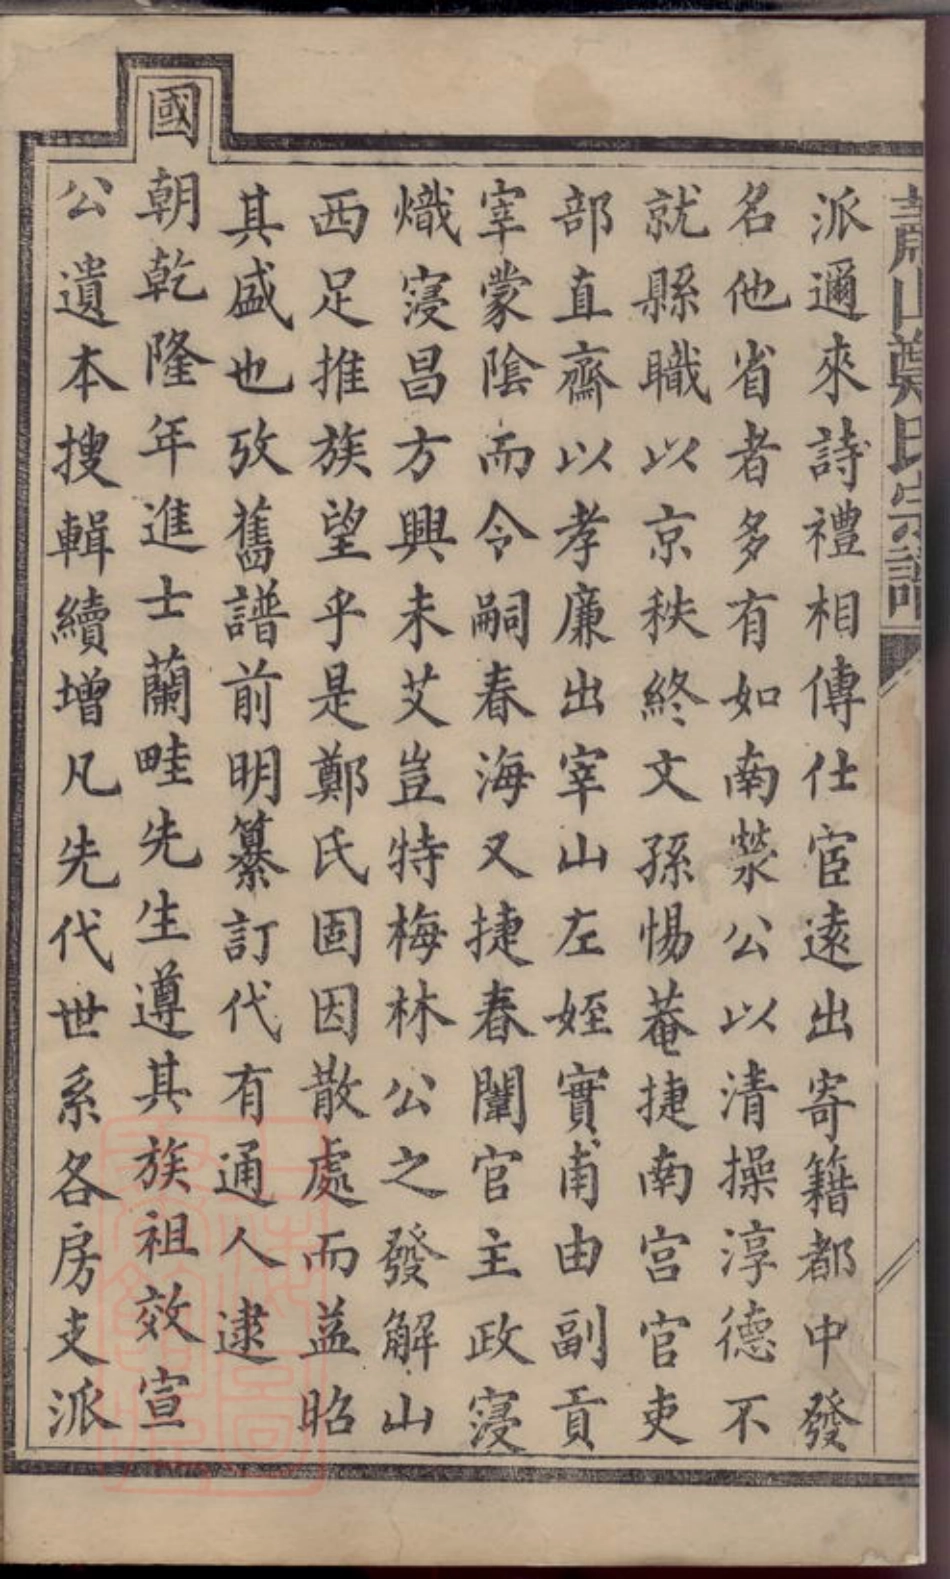 鄭氏宗譜
派邇來詩禮相傳仕宦遠出寄籍都中發
名他省者多有如南滎公以清操淳德不
就縣職以京秩終文孫惕菴捷南宮官吏
部直齋以孝廉出宰山左姪實甫由副貢
宰蒙陰而令嗣春海又捷春闈官主政寖
熾寖昌方興未艾豈特梅林公之發解山
西足推族望乎是鄭氏固因散處而益昭
其盛也攷舊譜前明纂訂代有通人逮
國朝乾隆年進士蘭畦先生遵其族祖效宣
公遺本搜輯續增凡先代世系各房支派